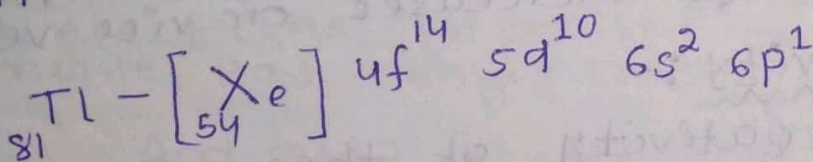 ₈₁Tl - [₅₄Xe] 4f¹⁴ 5d¹⁰ 6s² 6p¹